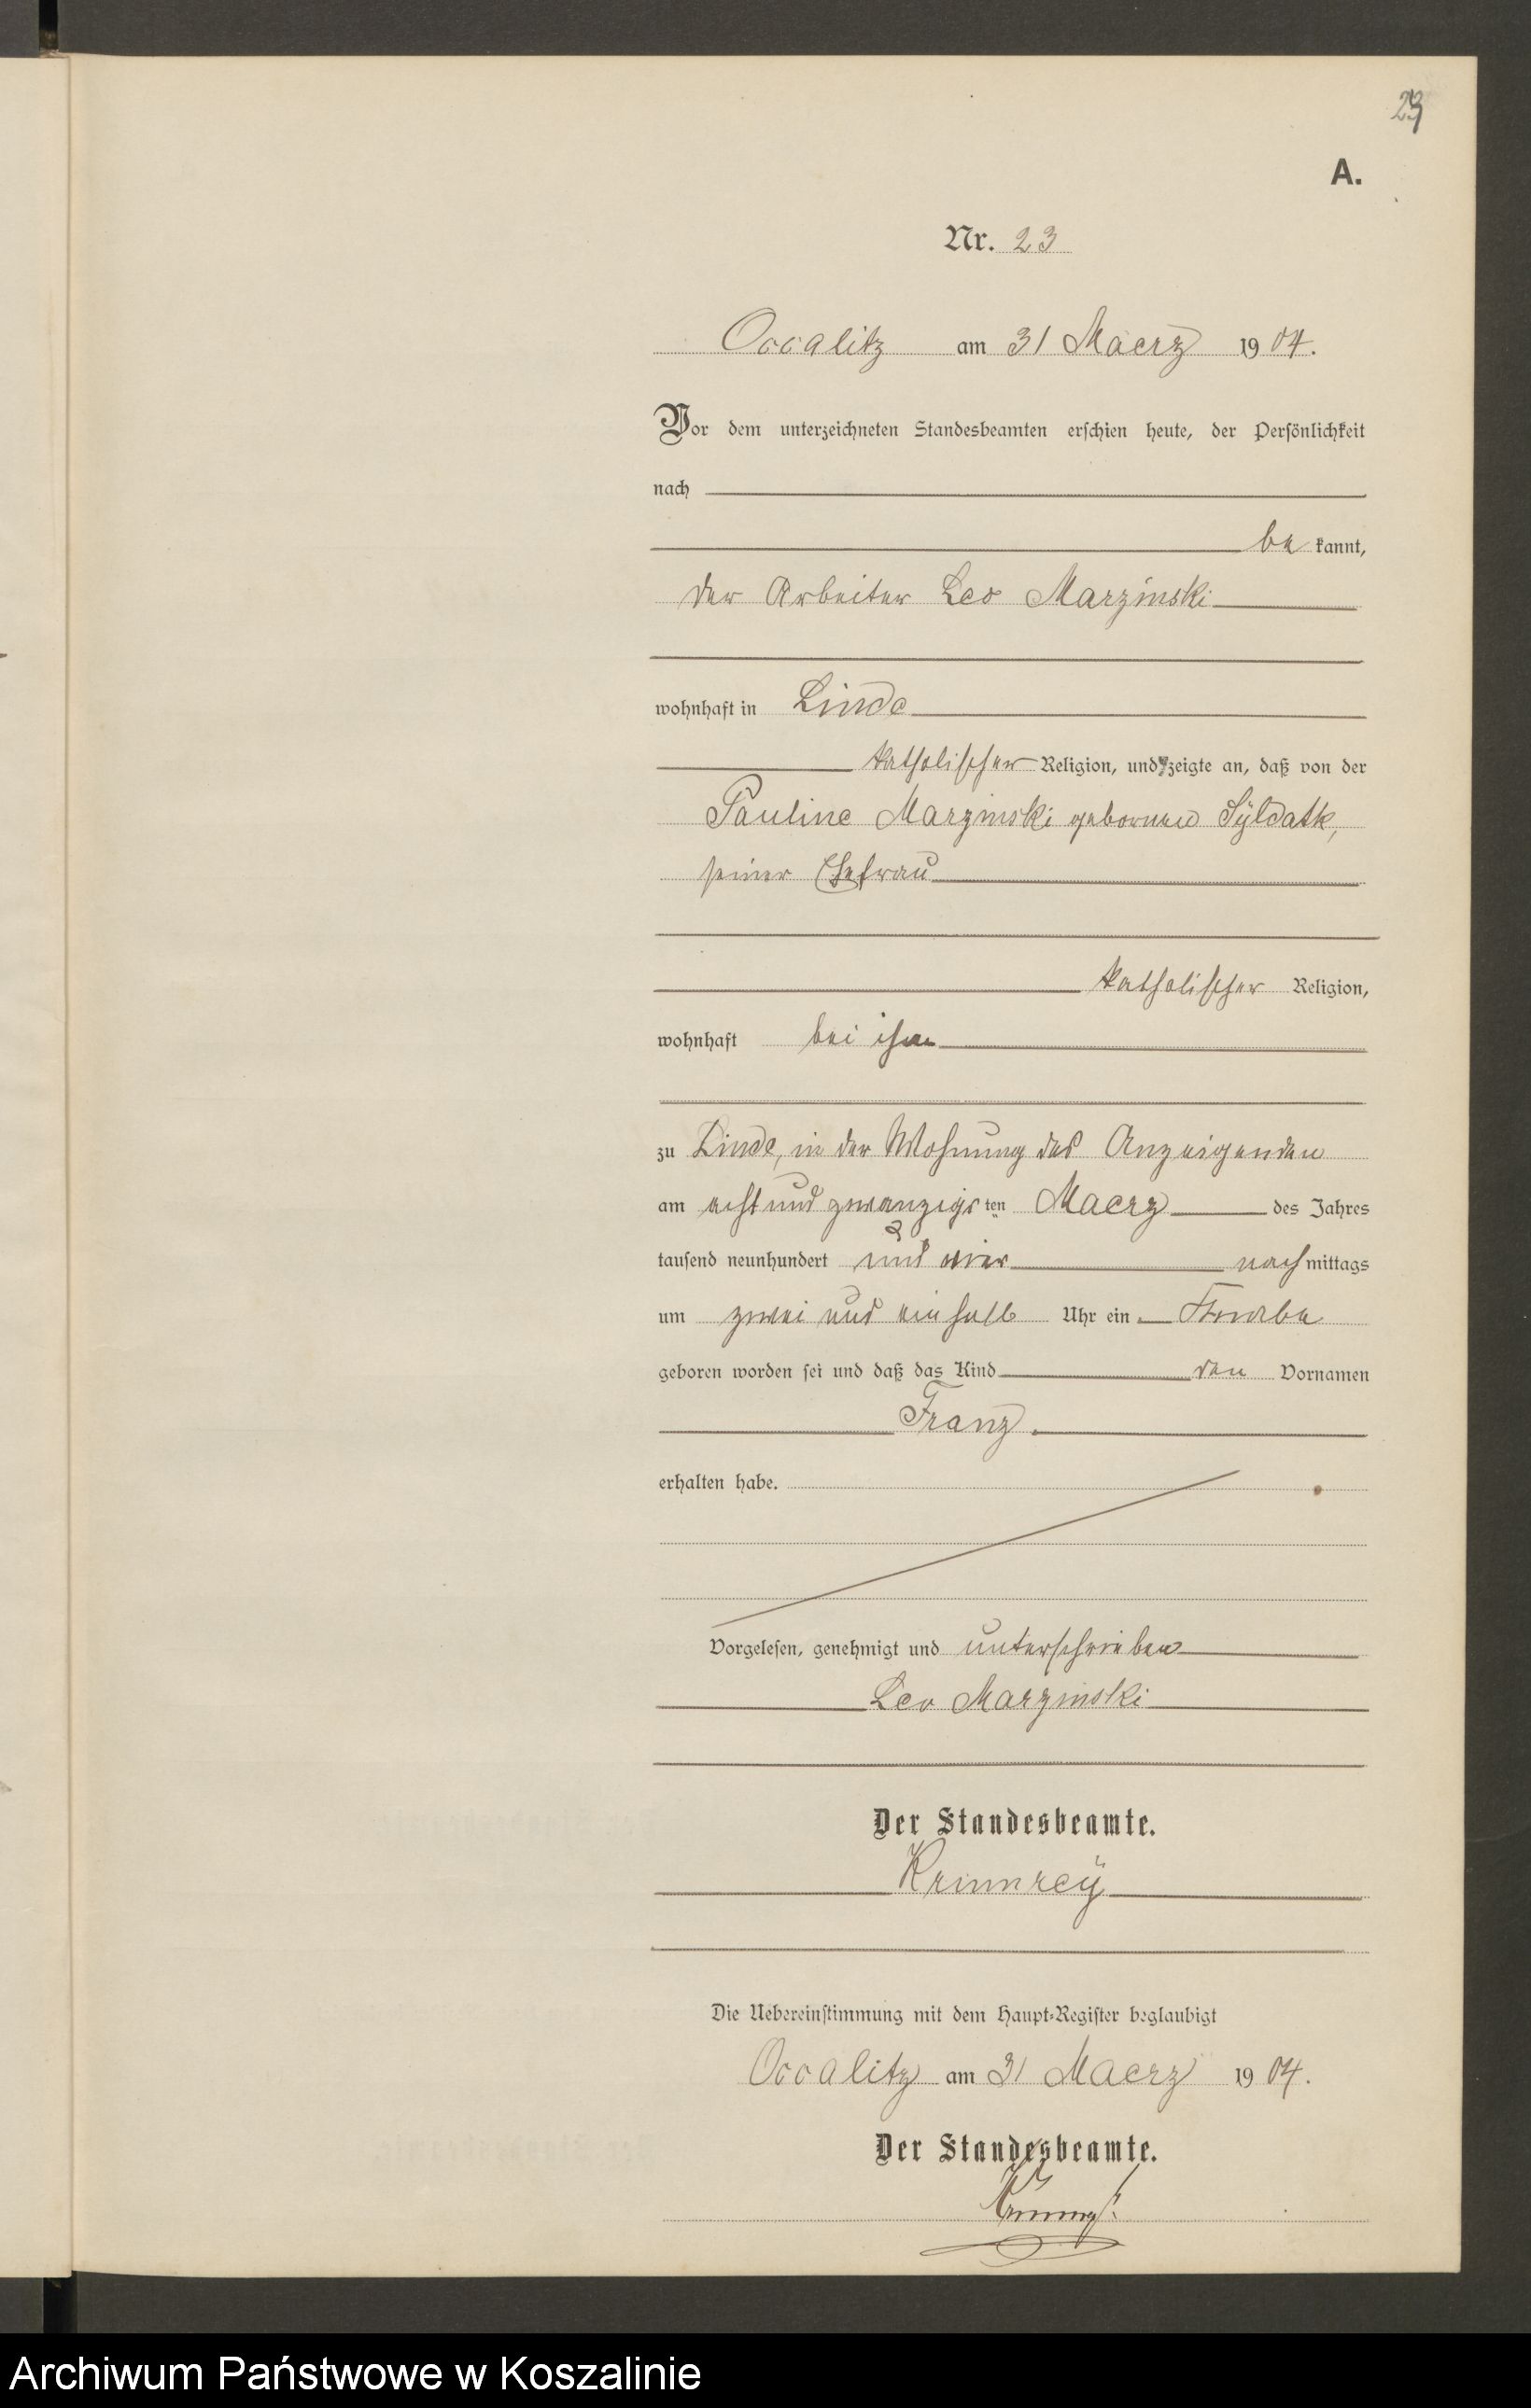 23
A.
Nr. 23
Occalitz am 31 Maerz 1904.
Vor dem unterzeichneten Standesbeamten erschien heute, der Persönlichkeit
nach
be kannt,
der Arbeiter Leo Marzinski
wohnhaft in Linde
katholischer Religion, und zeigte an, daß von der
Pauline Marzinski geborenen Syldatk,
seiner Ehefrau
katholischer Religion,
wohnhaft bei ihm
zu Linde, in der Wohnung des Anzeigenden
am acht und zwanzigsten Maerz des Jahres
tausend neunhundert und vier nachmittags
um zwei und ein halb Uhr ein Knabe
geboren worden sei und daß das Kind den Vornamen
Franz.
erhalten habe.
Vorgelesen, genehmigt und unterschrieben
Leo Marzinski
Der Standesbeamte.
Krimreÿ
Die Uebereinstimmung mit dem Haupt-Register beglaubigt
Occalitz am 31 Maerz 1904.
Der Standesbeamte.
Archiwum Państwowe w Koszalinie